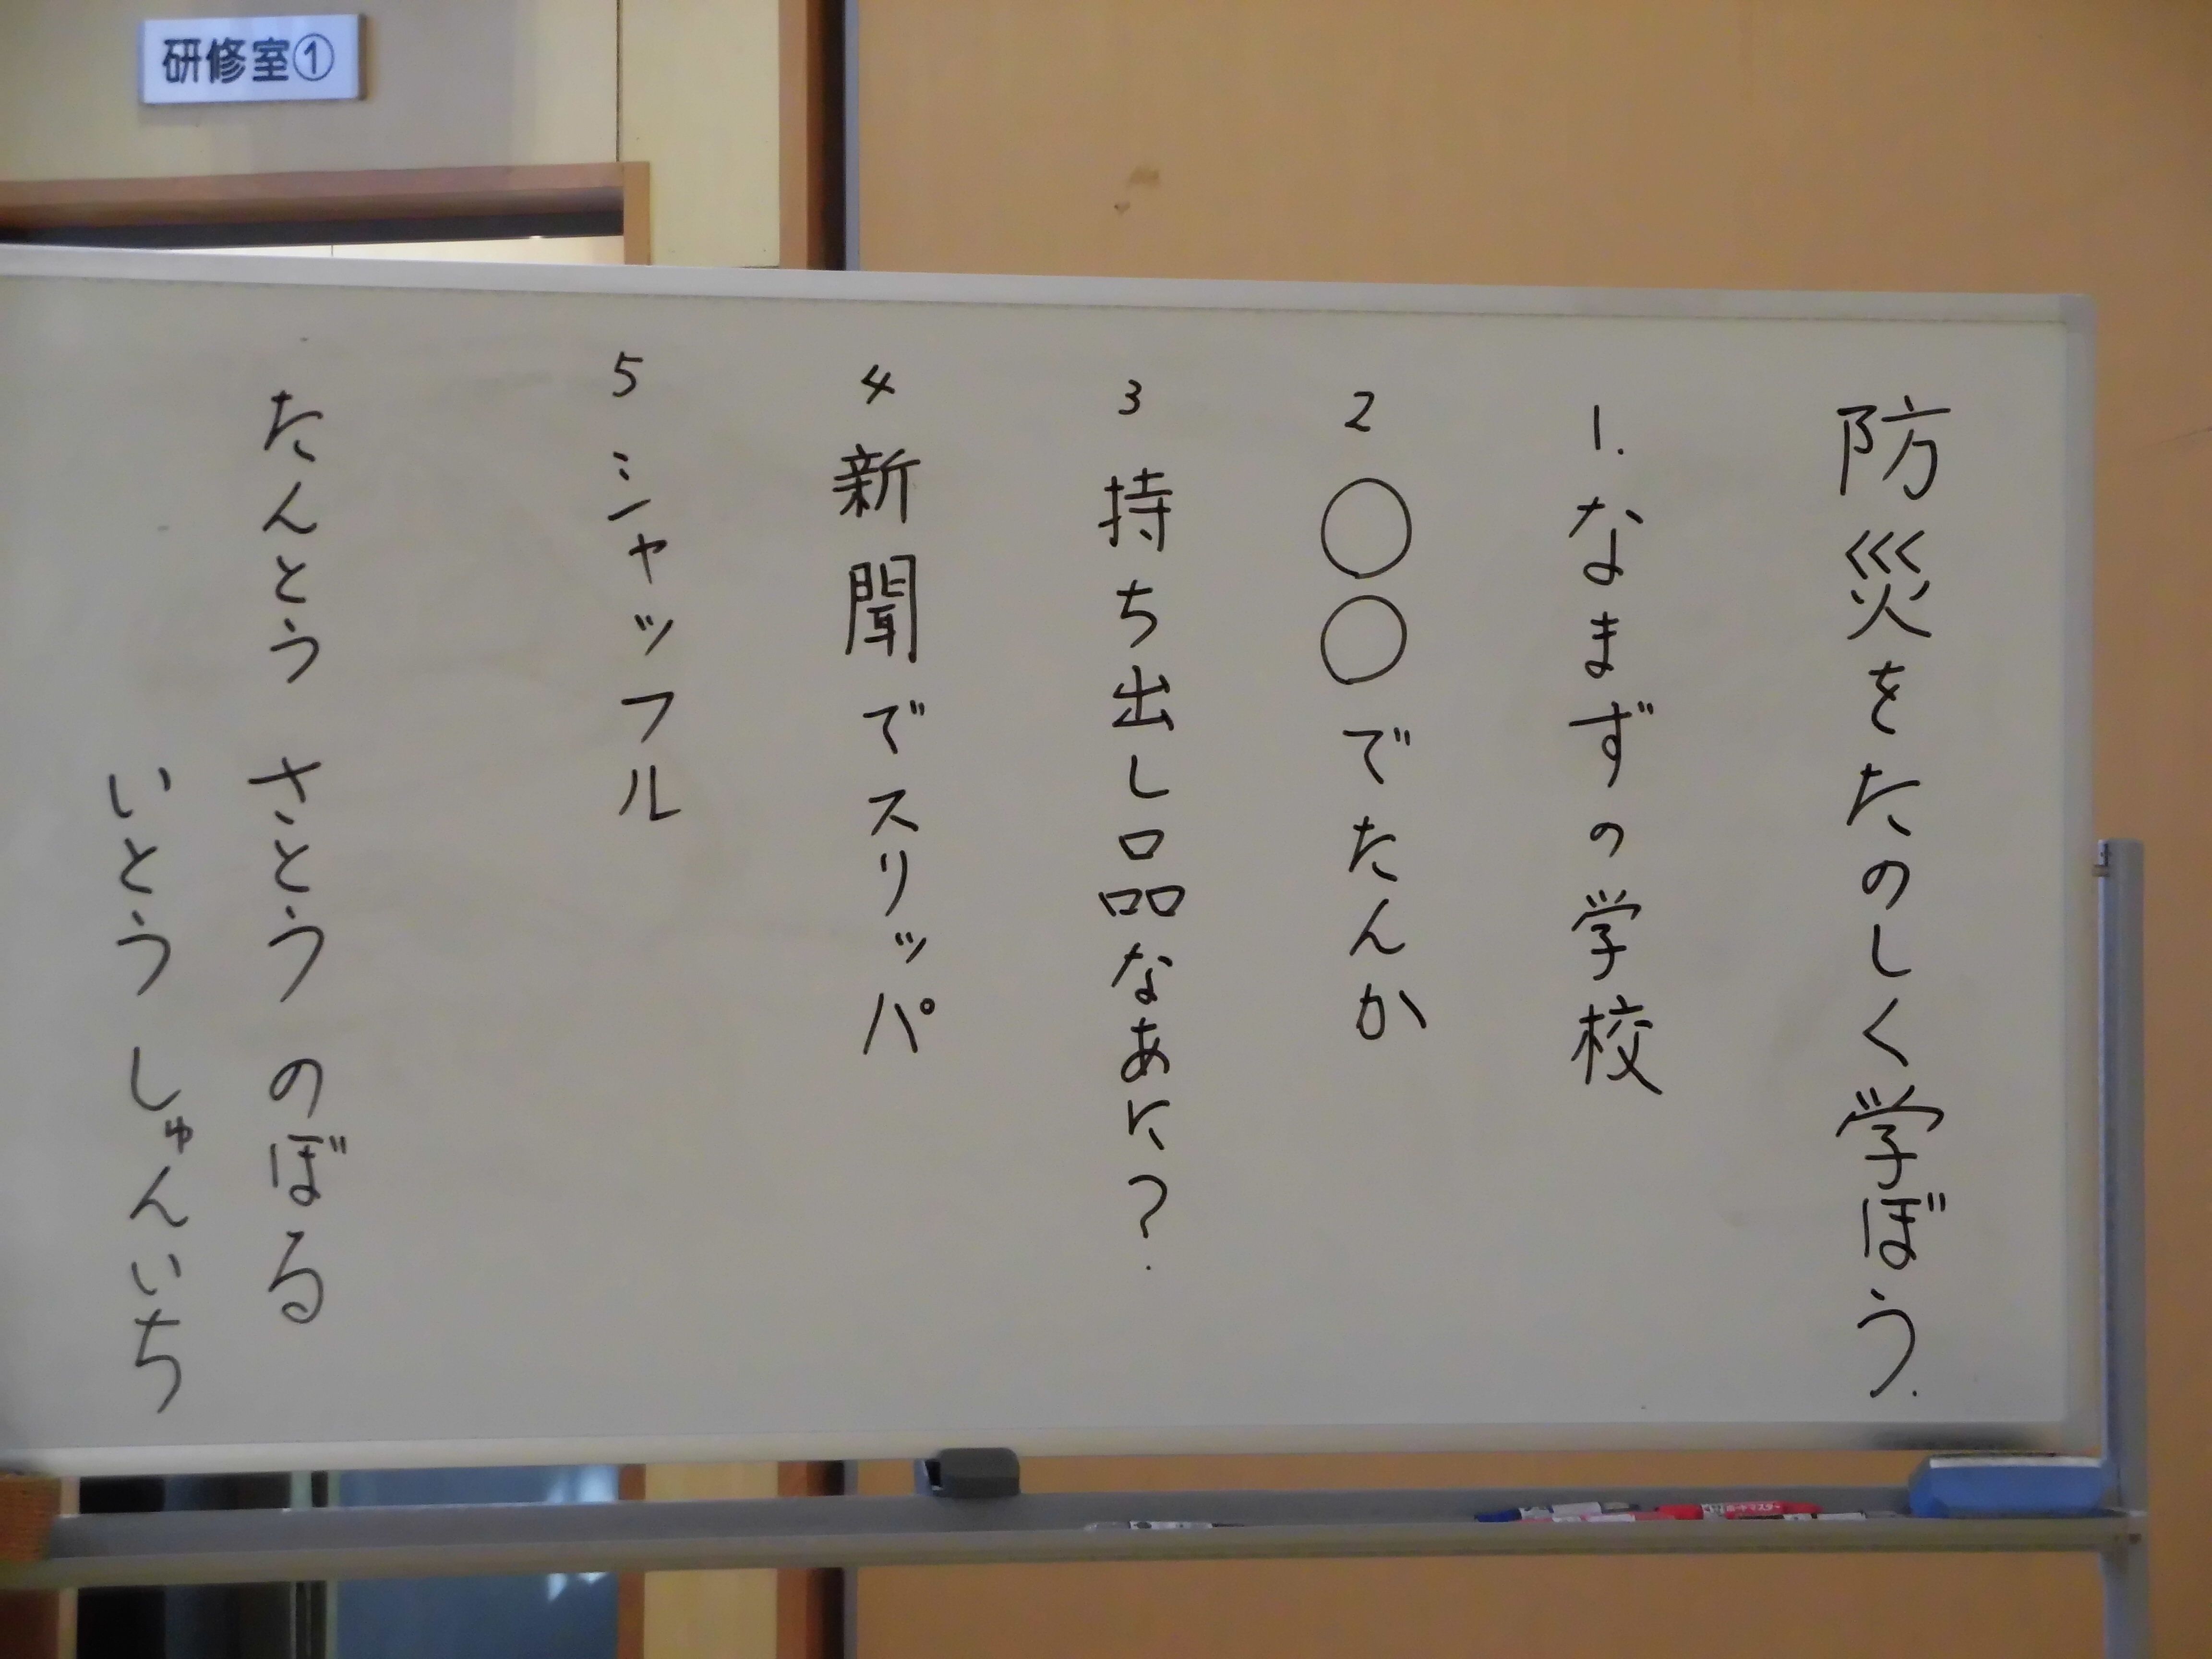 研修室①
防災をたのしく学ぼう.
1.なまずの学校
2 ○○でたんか
3 持ち出し品なあに?
4 新聞でスリッパ
5 シャッフル
たんとう さとう のぼる
いとう しゅんいち